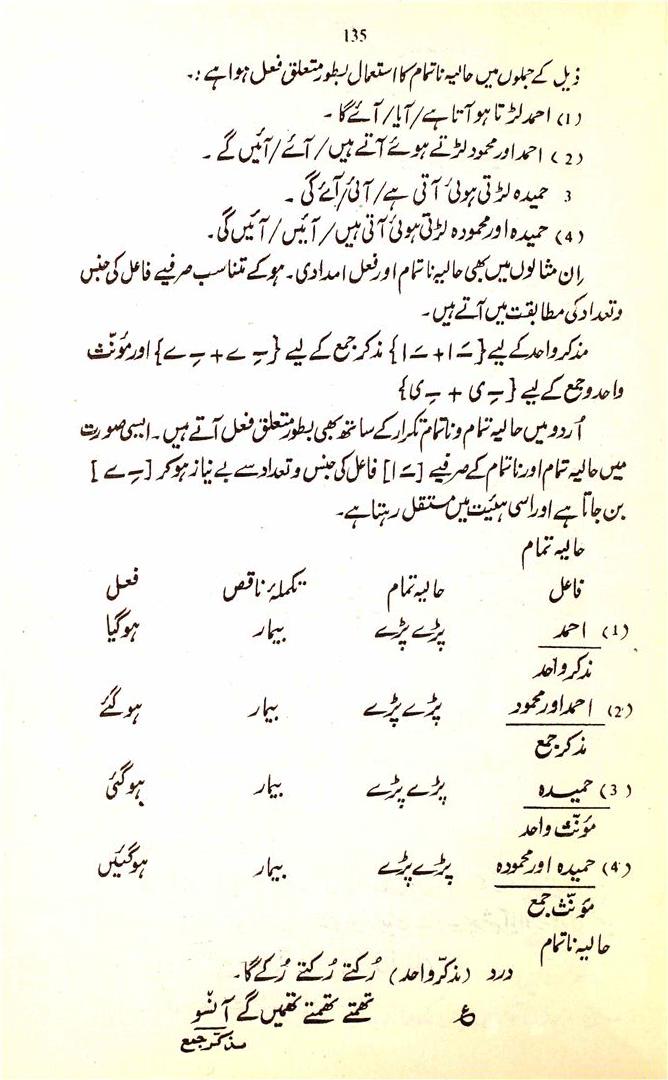 135
ذیل کے جملوں میں حالیہ ناتمام کا استعمال بطور متعلق فعل ہوا ہے :۔
(1) احمد لڑتا ہو آتا ہے/آیا/آئے گا ۔
(2) احمد اور محمود لڑتے ہوئے آتے ہیں/آئے/آئیں گے ۔
3 حمیدہ لڑتی ہوئی آتی ہے/آئی/آئے گی ۔
(4) حمیدہ اور محمودہ لڑتی ہوئی آتی ہیں/آئیں/آئیں گی۔
اِن مثالوں میں بھی حالیہ ناتمام اور فعل امدادی۔ ہو کے تناسب صرفیے فاعل کی جنس
و تعداد کی مطابقت میں آتے ہیں۔
مذکر واحد کے لیے {ـَا + ـَا} مذکر جمع کے لیے {ـِے + ـِے} اور مؤنّث
واحد و جمع کے لیے {ـِی + ـِی}
اُردو میں حالیہ تمام و ناتمام تکرار کے ساتھ بھی بطور متعلق فعل آتے ہیں۔ ایسی صورت
میں حالیہ تمام اور ناتمام کے صرفیے [ـَا] فاعل کی جنس و تعداد سے بے نیاز ہو کر [ـِے]
بن جاتا ہے اور اسی ہیئت میں مستقل رہتا ہے۔
حالیہ تمام
فاعل حالیہ تمام تکملۂ ناقص فعل
(1) احمد پڑے پڑے بیمار ہوگیا
مذکر واحد
(2) احمد اور محمود پڑے پڑے بیمار ہوگئے
مذکر جمع
(3) حمیدہ پڑے پڑے بیمار ہوگئی
مؤنّث واحد
(4) حمیدہ اور محمودہ پڑے پڑے بیمار ہوگئیں
مؤنّث جمع
حالیہ ناتمام
درد (مذکّر واحد) رُکتے رُکتے رُکے گا۔
ع تھمتے تھمتے تھمیں گے آنسو
مذکّر جمع